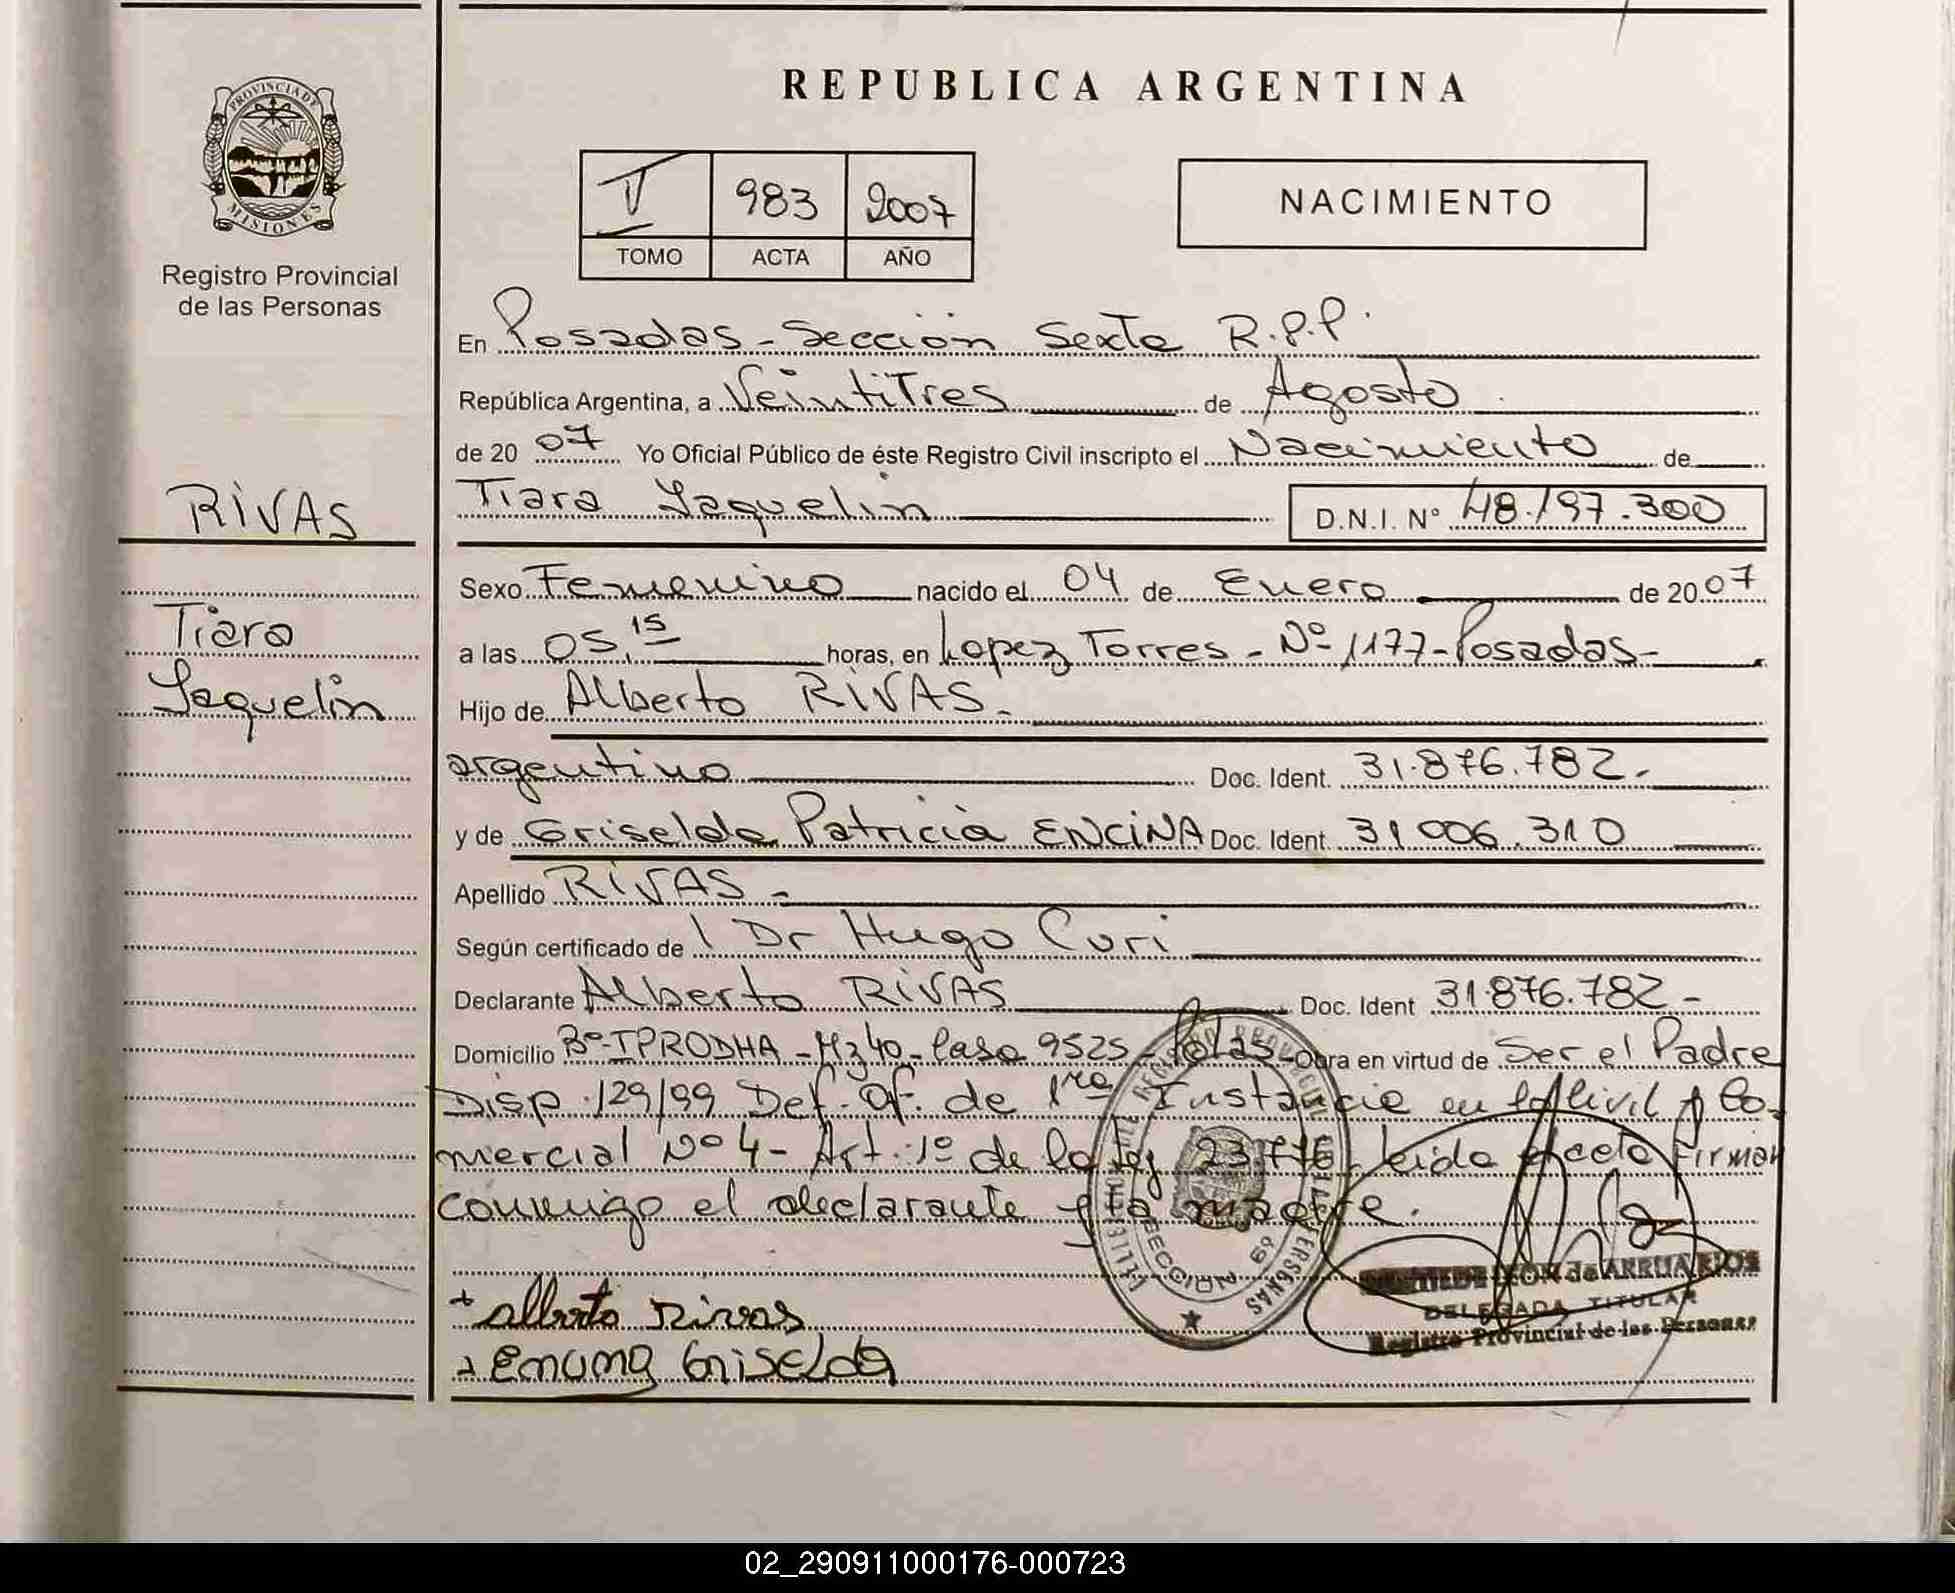 REPUBLICA ARGENTINA
PROVINCIA DE MISIONES
Registro Provincial
de las Personas
V 983 2007
TOMO ACTA AÑO
NACIMIENTO
En Posadas - Sección Sexta R.P.P.
República Argentina, a Veintitres de Agosto
de 2007 Yo Oficial Público de éste Registro Civil inscripto el Nacimiento de
Tiara Yaquelin D.N.I. Nº 48.197.300
RIVAS
Tiara
Yaquelin
Sexo Femenino nacido el 04 de Enero de 2007
a las 05,15 horas, en Lopez Torres - Nº 1177 - Posadas -
Hijo de Alberto RIVAS -
argentino Doc. Ident. 31.876.782 -
y de Griselda Patricia ENCINA Doc. Ident 31.006.310
Apellido RIVAS -
Según certificado de l Dr Hugo Curi
Declarante Alberto RIVAS Doc. Ident 31.876.782 -
Domicilio Bº IPRODHA - Mz 40 - Casa 9525 - Pdas - Obra en virtud de Ser el Padre
Disp. 129/99 Def. Of. de 1ra Instancia en lo Civil y Co-
mercial Nº 4 - Art. 1º de la Ley 23.776 - Leida el acta firman
conmigo el declarante y la madre.
SECCION 6º
DE LAS PERSONAS
de ARRUA RIOS
DELEGADA TITULAR
Registro Provincial de las Personas
+ Alberto Rivas
+ Griselda
02_290911000176-000723